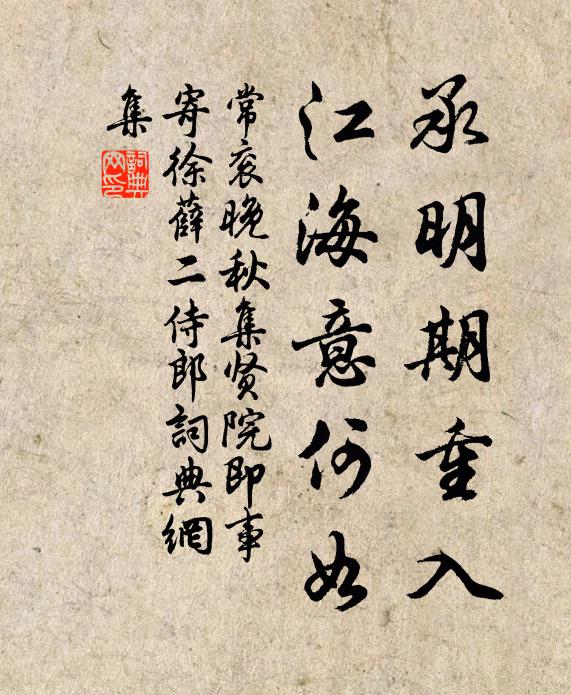 承明期重入
江海意何如
常衮晚秋集贤院即事
寄徐薛二侍郎詞典網
集
詞典
网印